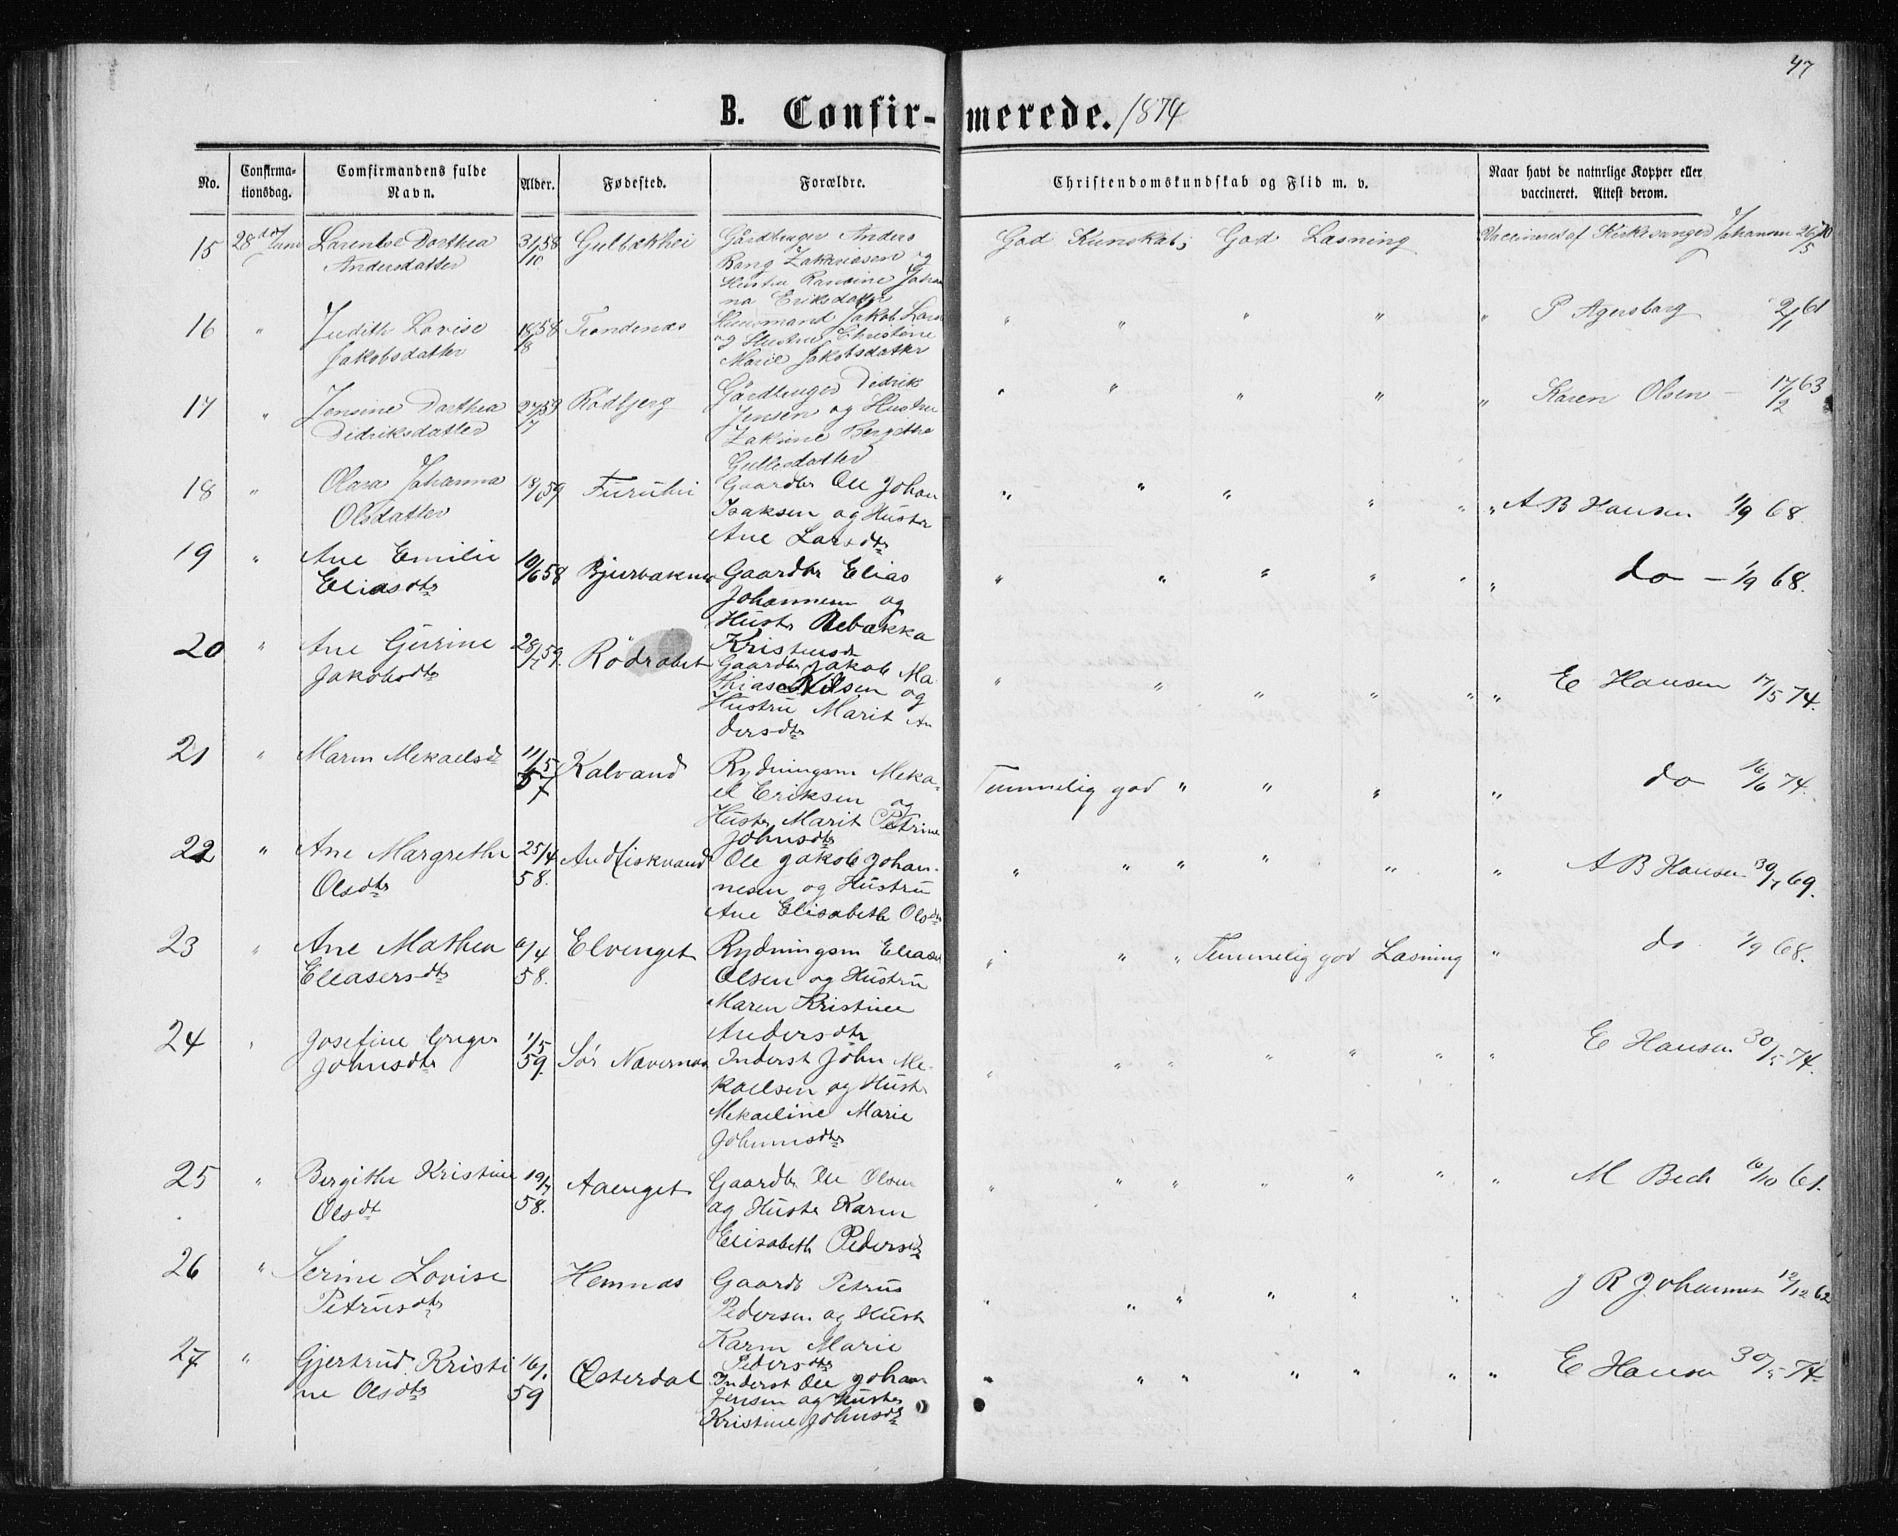 47
B. Confirmerede. 1874
No.
Confirmationsdag.
Comfirmandens fulde Navn.
Alder.
Fødested.
Forældre.
Christendomskundskab og Flid m. v.
Naar havt de naturlige Kopper eller vaccineret. Attest derom.
15 28de Juni Larentse Dorthea 31/10 58 Gulbakhei Gårdbruger Anders God Kunskab, God Læsning Vaccineret af Kirkesanger Johansen 26/5 70
Andersdatter Bang Zakariasen og
Hustru Johan
na Eriksdatter
16 " Judith Lovise 18/8 58 Trondenæs Huusmand Jakob " " " " " P Agersborg 2/1 61
Jakobsdatter og Hustru Christine
Marie Jakobsdatter
17 " Jensine Dorthea 27/7 59 Rødbjerg Gårdbruger Didrik " " " " " Karen Olsen – 17/2 63
Didriksdatter Jensen og Hustru
Zakrine Bergithe
Gullesdatter
18 " Olava Johanna 18/ 59 Furuhei Gaardbr Ole Johan " " " " " " A B Hansen 1/9 68.
Olsdatter Isaksen og Hustr
Ane Larsdtr
19 " Ane Emilie 10/6 58 Bjerbakmo Gaardbr Elias " " " " " " do – 1/9 68.
Eliasdtr Johannesen og
Hustr Rebakka
Kristensdt
20 " Ane Gurine 28/7 59. Rödrabet Gaardbr Jakob Ma " " " " " " E Hansen 17/5 74.
Jakobsdtr thias Nilsen og
Hustru Marit An
dersdtr
21 " Maren Mekaelsdt 11/5 57 Kalvand Rydningsm Meka- Temmelig god " " " " do 16/6 74.
el Eriksen og
Hustr Marit Petrine
Johnsdtr
22 " Ane Margrethe 25/4 Andfiskvand Ole Jakob Johan- " " " " " " A B Hansen 30/7 69.
Olsdtr 58. nesen og Hustru
Ane Elisabeth Olsdtr
23 " Ane Mathea 6/4 Elvenget Rydningsm Eleaser " " " Temmelig god Læsning " do. 1/9 68.
Eleasersdtr 58. Olsen og Hustru
Maren Kristine
Andersdtr
24 " Josefine Greger 1/5 Sør Navernæs Inderst John Me- " " " " " " " E Hansen 30/5 74.
Johnsdtr 59. kaelsen og Hustr
Mekaeline Marie
Johannsdtr
25 " Bergithe Kristine 19/7 Aaenget Gaardbr Ole Olsen " " " " " " " M Bech 6/10 61.
Olsdt 58. og Hustr Karen
Elisabeth Pedersdt
26 " Serine Lovise Hemnæs Gaardb Petrus " " " " " " " J R Johannesen 12/12 62
Petrusdtr Pedersen og Hustr
Karen Marie
Pedersdtr
27 " Gjertrud Kristi 16/1. Østerdal Inderst Ole Johan " " " " " " " E Hansen 30/5 74.
ne Olsdtr 59 Jensen og Hustr
Kristine Johnsdt